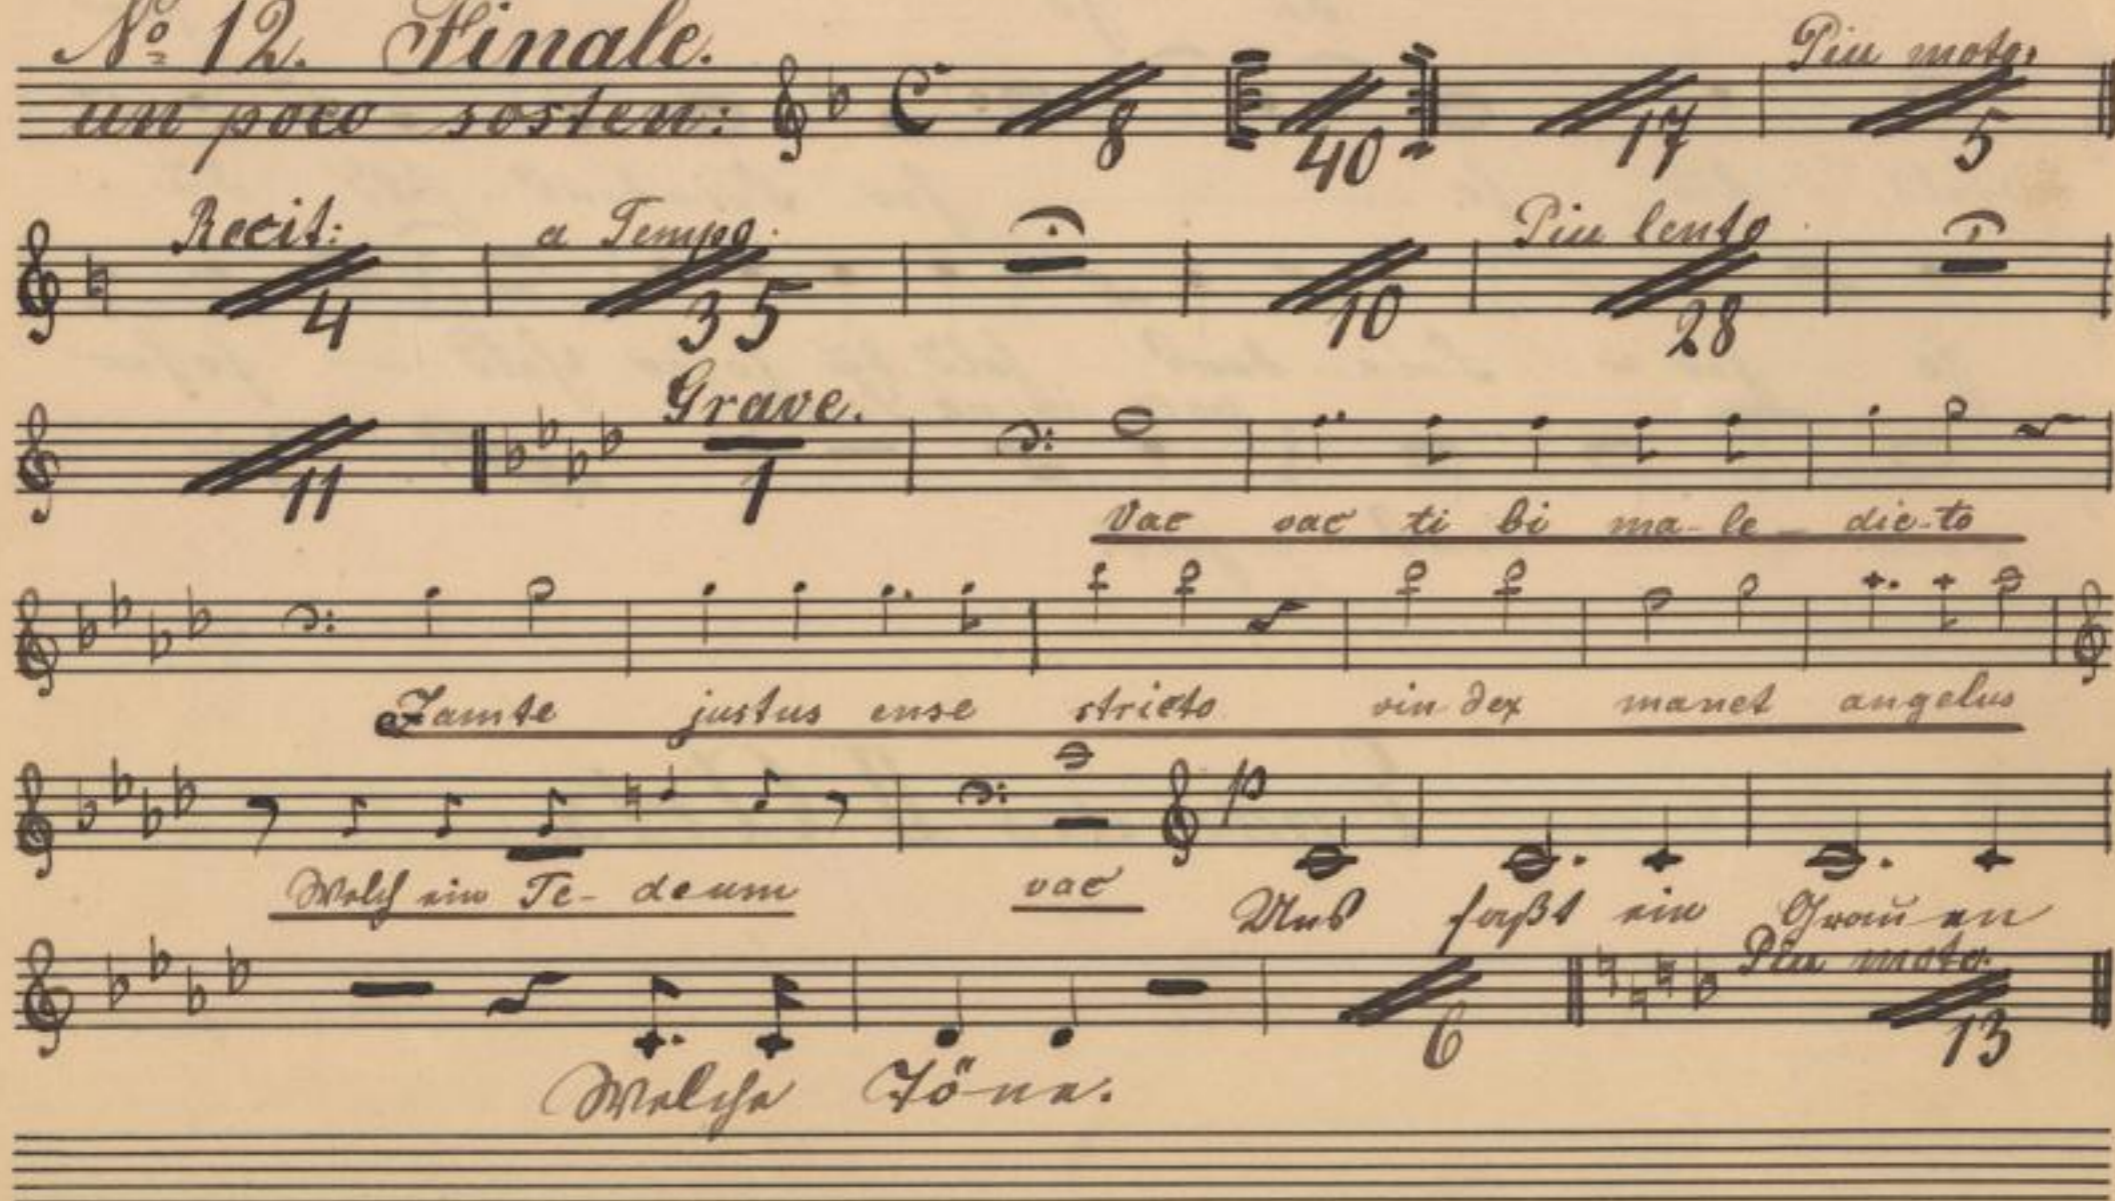 No 12. Finale.
un poco sosten:
8 40 17 Piu moto. 5
Recit: 4 a Tempo. 35 10 Piu lento 28
11 Grave. 1
Vae vae ti bi ma-le-dic-to
Jam te justus ense stricto vin dex manet angelus
Welch ein Te-deum vae p Uns faßt ein Grauen
6 Piu moto. 13
Welche Töne.